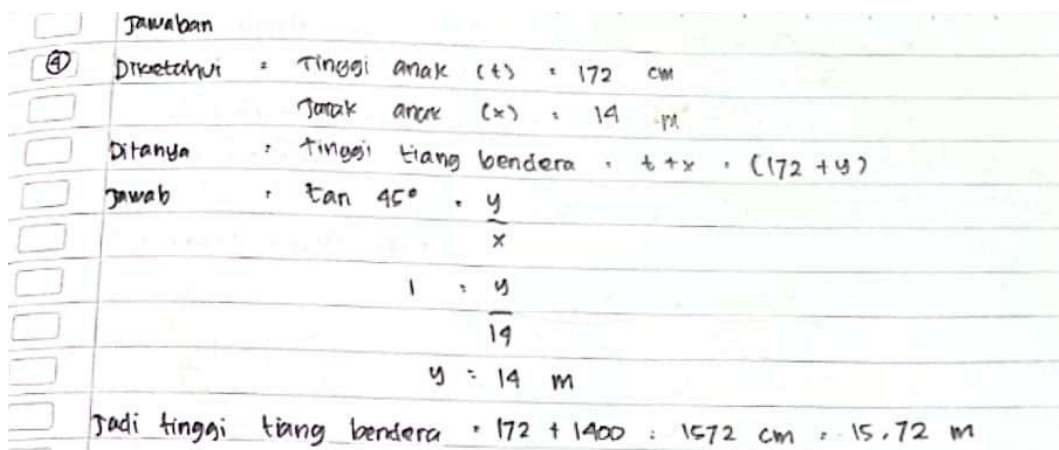 Jawaban
④ Diketahui : Tinggi anak (t) = 172 cm
Jarak anak (x) = 14 m
Ditanya : tinggi tiang bendera = t + x = (172 + y)
Jawab : tan 45° = y/x
1 = y/14
y = 14 m
Jadi tinggi tiang bendera = 172 + 1400 = 1572 cm = 15,72 m